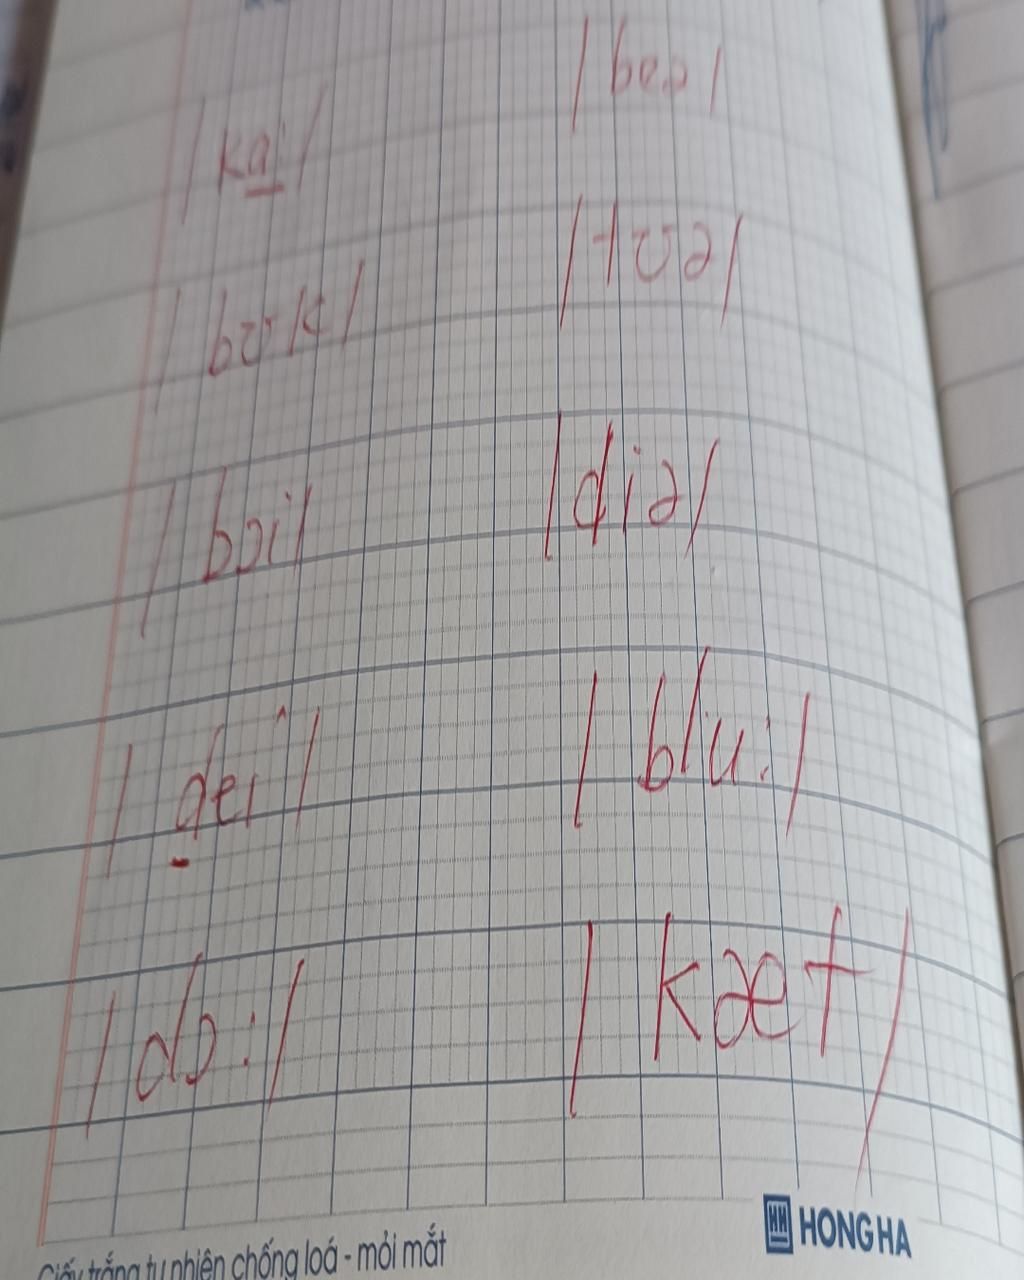 /kɑː/ /beə/
/bʊk/ /tʊə/
/bɔi/ /diə/
/dei/ /bluː/
/dɔː/ /kæt/
Giấy trắng tự nhiên chống loá - mỏi mắt HONG HA